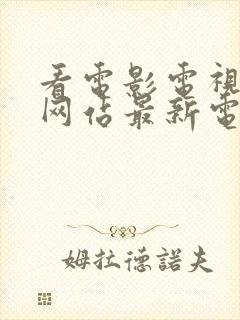 看電影電視
网佔最新電
姆拉德諾夫